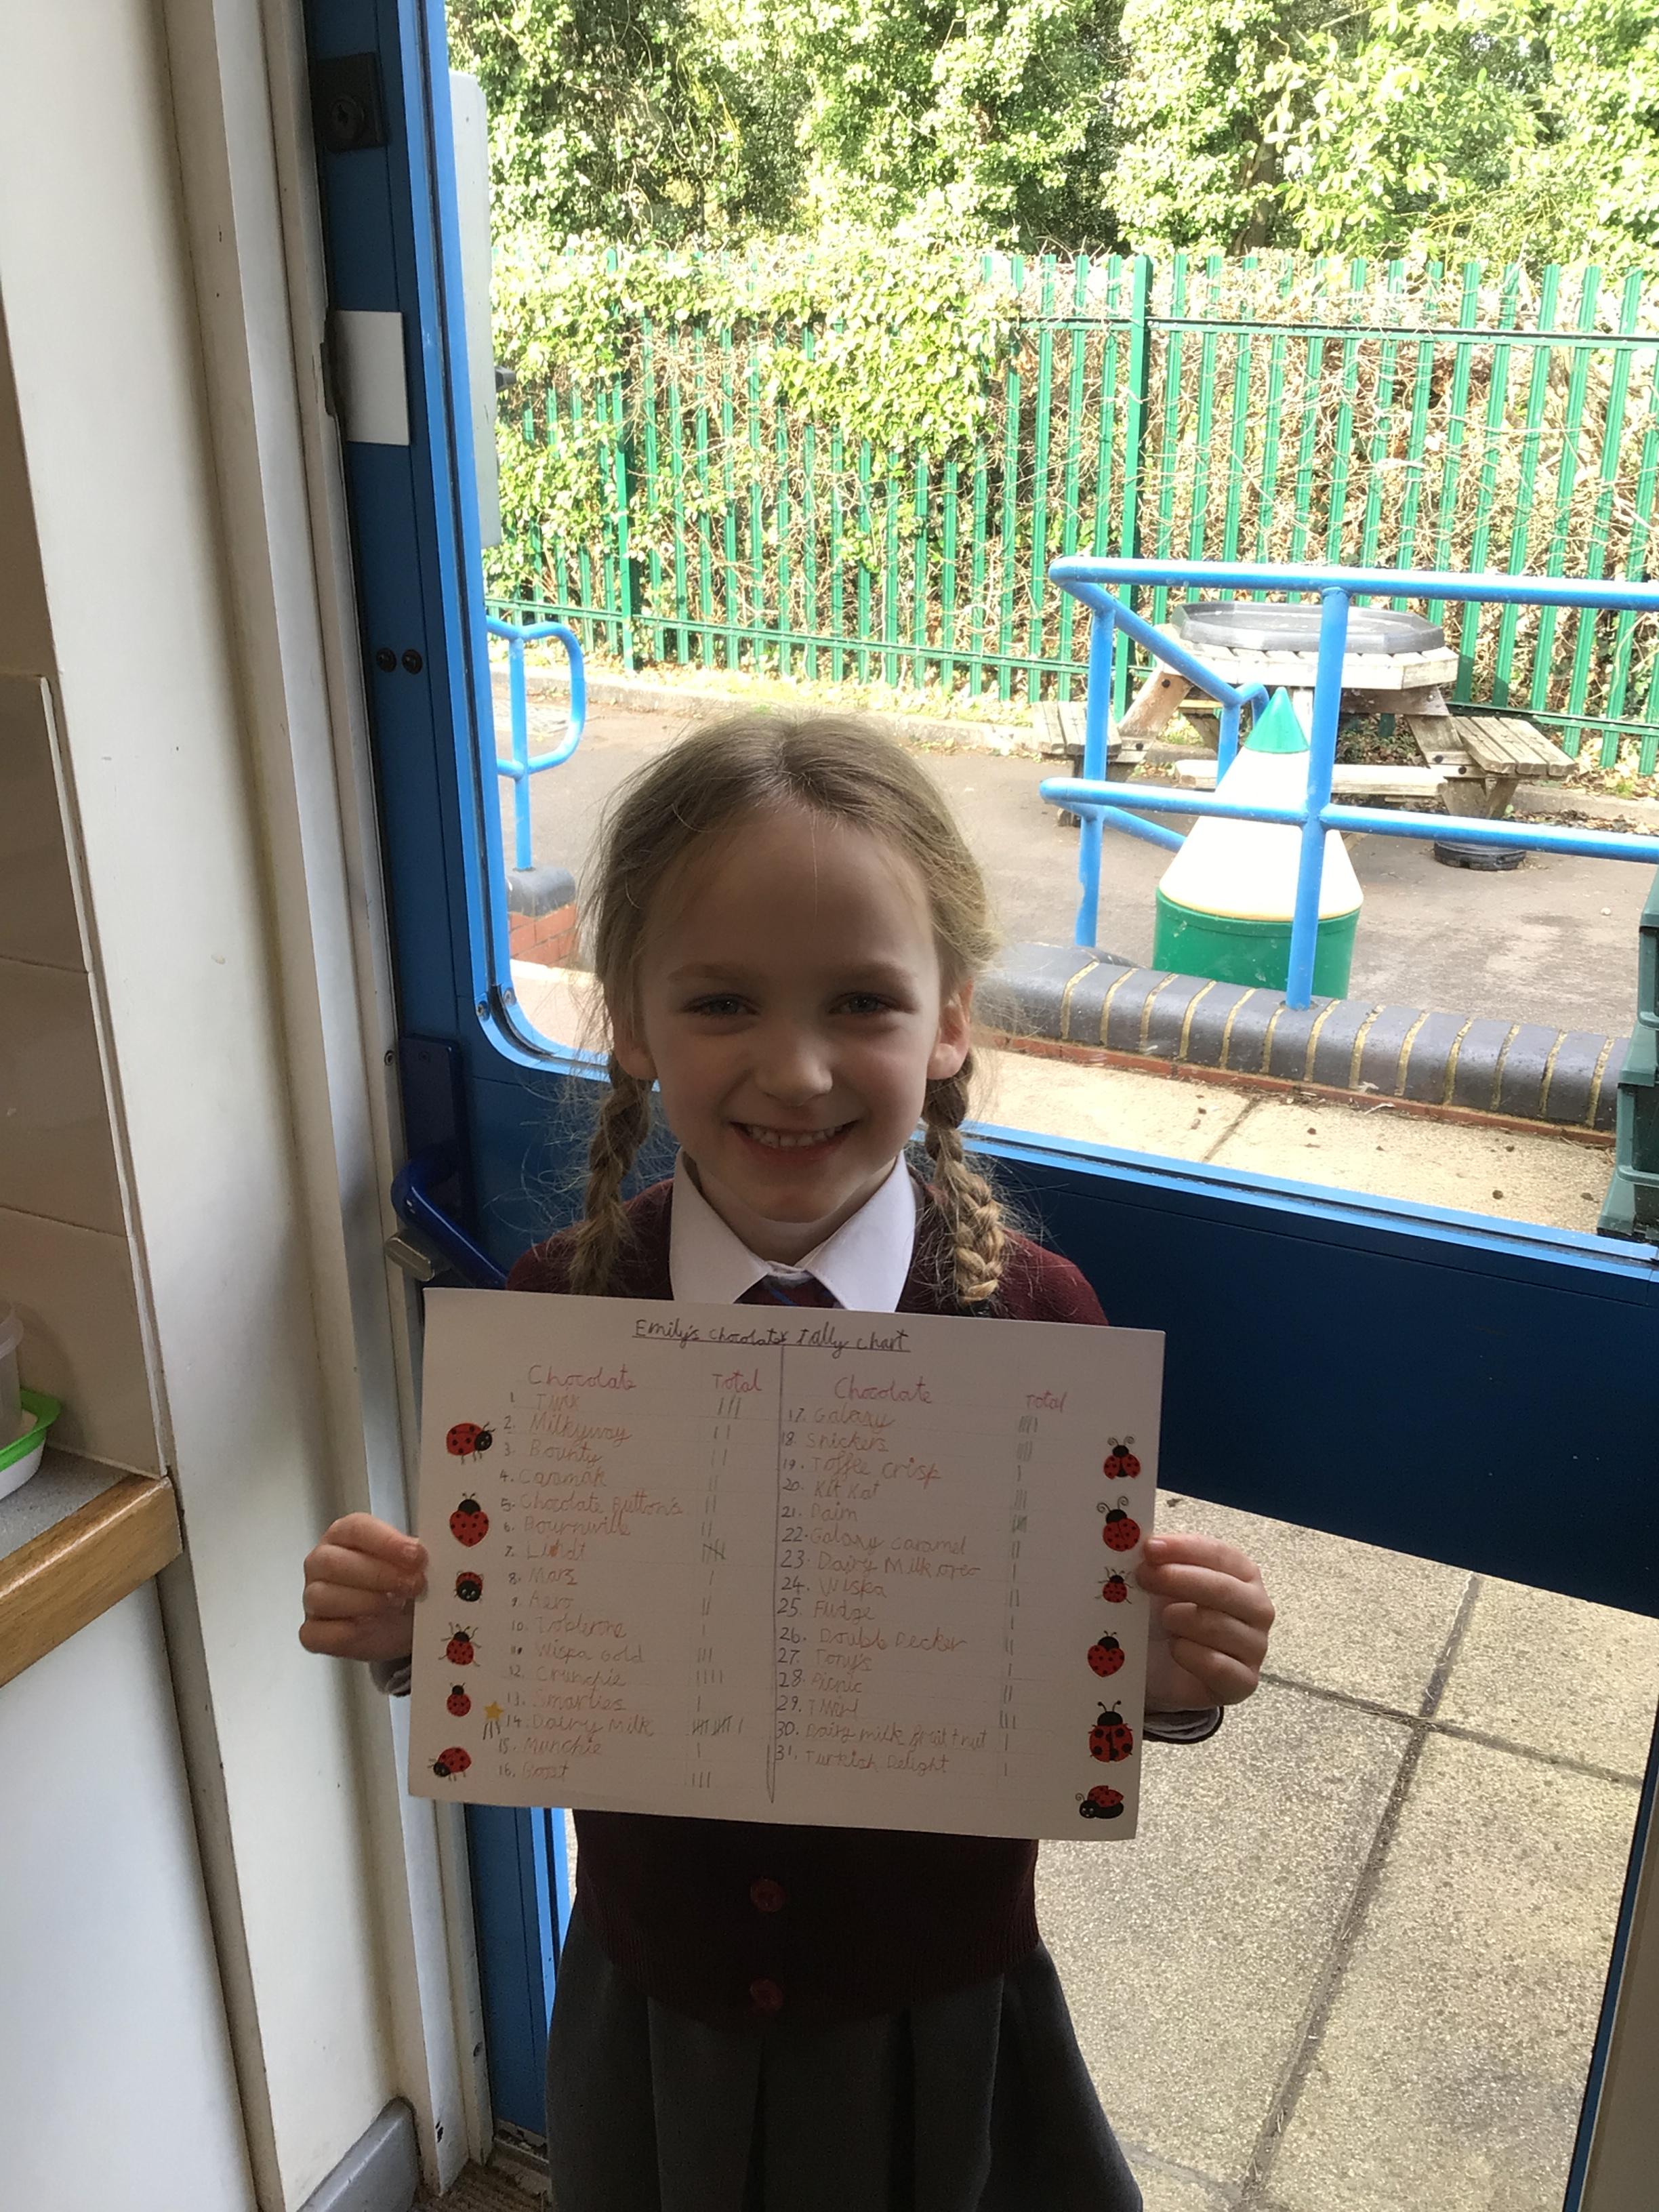 Emily's chocolate Tally chart
Chocolate Total
1. Twix
2. Milkyway
3. Bounty
4. Caramak
5. Chocolate Button's
6. Bournville
7. Lindt
8. Mars
9. Aero
10. Toblerone
11. Wispa Gold
12. Crunchie
13. Smarties
14. Dairy Milk
15. Munchie
16. Boost
Chocolate Total
17. Galaxy
18. Snickers
19. Toffee Crisp
20. Kit Kat
21. Daim
22. Galaxy caramel
23. Dairy Milk oreo
24. Wispa
25. Fudge
26. Double Decker
27. Tony's
28. Picnic
29. Twirl
30. Dairy milk fruit + nut
31. Turkish Delight